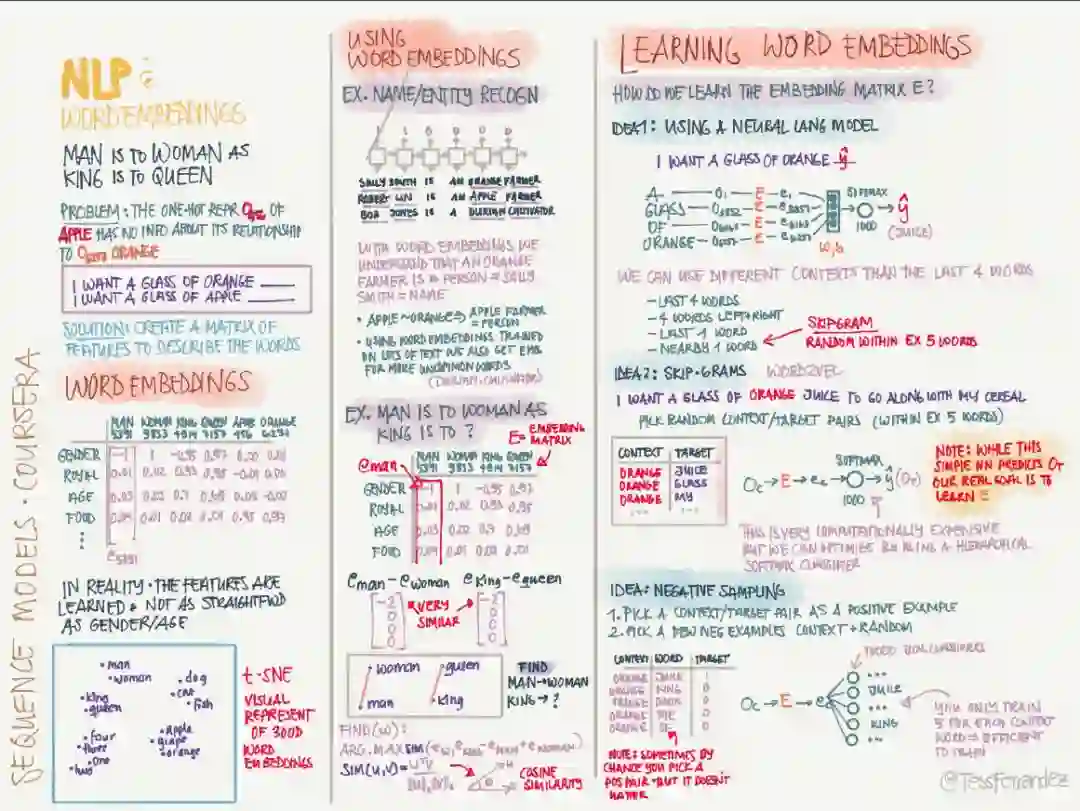 SEQUENCE MODELS · COURSERA
NLP:
WORD EMBEDDINGS
MAN IS TO WOMAN AS
KING IS TO QUEEN
PROBLEM: THE ONE-HOT REPR OF
APPLE HAS NO INFO ABOUT ITS RELATIONSHIP
TO ORANGE
I WANT A GLASS OF ORANGE ____
I WANT A GLASS OF APPLE ____
SOLUTION: CREATE A MATRIX OF
FEATURES TO DESCRIBE THE WORDS
WORD EMBEDDINGS
MAN WOMAN KING QUEEN APPLE ORANGE
5391 9853 4914 7157 456 6257
GENDER -1 1 -0.95 0.97 0.00 0.01
ROYAL 0.01 0.02 0.93 0.95 -0.01 0.00
AGE 0.03 0.02 0.7 0.69 0.03 -0.02
FOOD 0.04 0.01 0.02 0.01 0.95 0.97
e5391
IN REALITY · THE FEATURES ARE
LEARNED & NOT AS STRAIGHTFWD
AS GENDER/AGE
man
woman
dog
cat
fish
king
queen
four
three
one
two
apple
grape
orange
t-SNE
VISUAL
REPRESENT
OF 300D
WORD
EMBEDDINGS
USING
WORD EMBEDDINGS
EX. NAME/ENTITY RECOGN
1 1 0 0 0 0
SALLY SMITH IS AN ORANGE FARMER
ROBERT LIN IS AN APPLE FARMER
BOB JONES IS A DURIAN CULTIVATOR
WITH WORD EMBEDDINGS WE
UNDERSTAND THAT AN ORANGE
FARMER IS A PERSON → SALLY
SMITH = NAME
• APPLE ~ ORANGE → APPLE FARMER
= PERSON
• USING WORD EMBEDDINGS TRAINED
ON LOTS OF TEXT WE ALSO GET EMB.
FOR MORE UNCOMMON WORDS
(DURIAN, CULTIVATOR)
EX. MAN IS TO WOMAN AS
KING IS TO ?
E= EMBEDDING
MATRIX
e man
MAN WOMAN KING QUEEN
5391 9853 4914 7157
GENDER -1 1 -0.95 0.97
ROYAL 0.01 0.02 0.93 0.95
AGE 0.03 0.02 0.7 0.69
FOOD 0.04 0.01 0.02 0.01
e man - e woman e king - e queen
-2 0 0 0
VERY
SIMILAR
-2 0 0 0
woman queen
man king
FIND
MAN→WOMAN
KING→?
FIND(W):
ARG. MAX SIM(e w, e KING - e MAN + e WOMAN)
SIM(U,V) =
COSINE
SIMILARITY
LEARNING WORD EMBEDDINGS
HOW DO WE LEARN THE EMBEDDING MATRIX E?
IDEA1: USING A NEURAL LANG MODEL
I WANT A GLASS OF ORANGE ŷ
A — O1 — E — e1
GLASS — E
OF — E
ORANGE — E
w,b
SOFTMAX
1000
ŷ
(JUICE)
WE CAN USE DIFFERENT CONTEXTS THAN THE LAST 4 WORDS
- LAST 4 WORDS
- 4 WORDS LEFT+RIGHT
- LAST 1 WORD
- NEARBY 1 WORD
SKIPGRAM
RANDOM WITHIN EX 5 WORDS
IDEA2: SKIP-GRAMS WORD2VEC
I WANT A GLASS OF ORANGE JUICE TO GO ALONG WITH MY CEREAL
PICK RANDOM CONTEXT/TARGET PAIRS (WITHIN EX 5 WORDS)
CONTEXT TARGET
ORANGE JUICE
ORANGE GLASS
ORANGE MY
... ...
SOFTMAX
Oc → E → ec → ŷ (Ot)
1000
NOTE: WHILE THIS
SIMPLE NN PREDICTS Ot
OUR REAL GOAL IS TO
LEARN E
THIS IS VERY COMPUTATIONALLY EXPENSIVE
BUT WE CAN OPTIMISE BY USING A HIERARCHICAL
SOFTMAX CLASSIFIER
IDEA: NEGATIVE SAMPLING
1. PICK A CONTEXT/TARGET PAIR AS A POSITIVE EXAMPLE
2. PICK A FEW NEG EXAMPLES CONTEXT + RANDOM
CONTEXT WORD TARGET
ORANGE JUICE 1
ORANGE KING 0
ORANGE BOOK 0
ORANGE THE 0
ORANGE OF 0
NOTE: SOMETIMES BY
CHANCE YOU PICK A
POS PAIR - BUT IT DOESN'T
MATTER
Oc → E → ec
...
JUICE
...
KING
...
YOU ONLY TRAIN
5 FOR EACH CONTEXT
WORD = EFFICIENT
TO TRAIN
@TessFerrandez